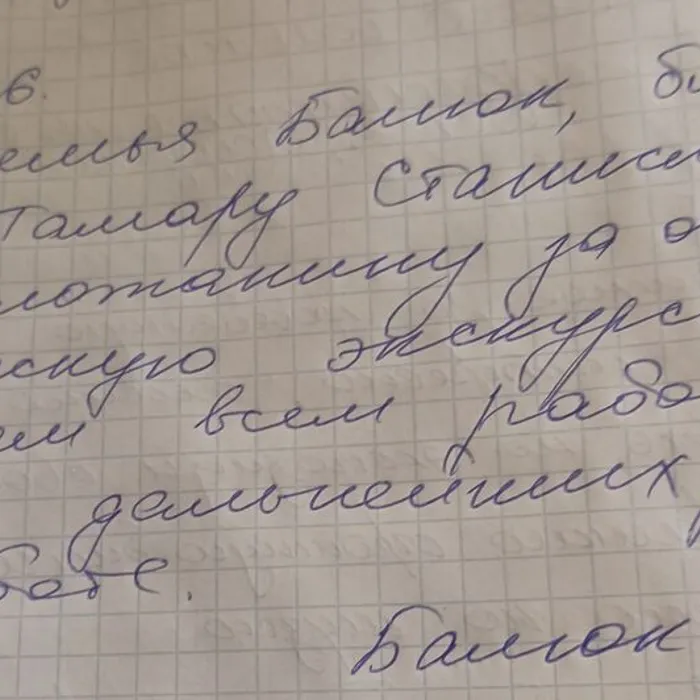 6.
емья Балюк, бл
Тамару Станисл
ложанину за о
скую экскурс
ем всем рабо
дальнейших
боте.
Балюк